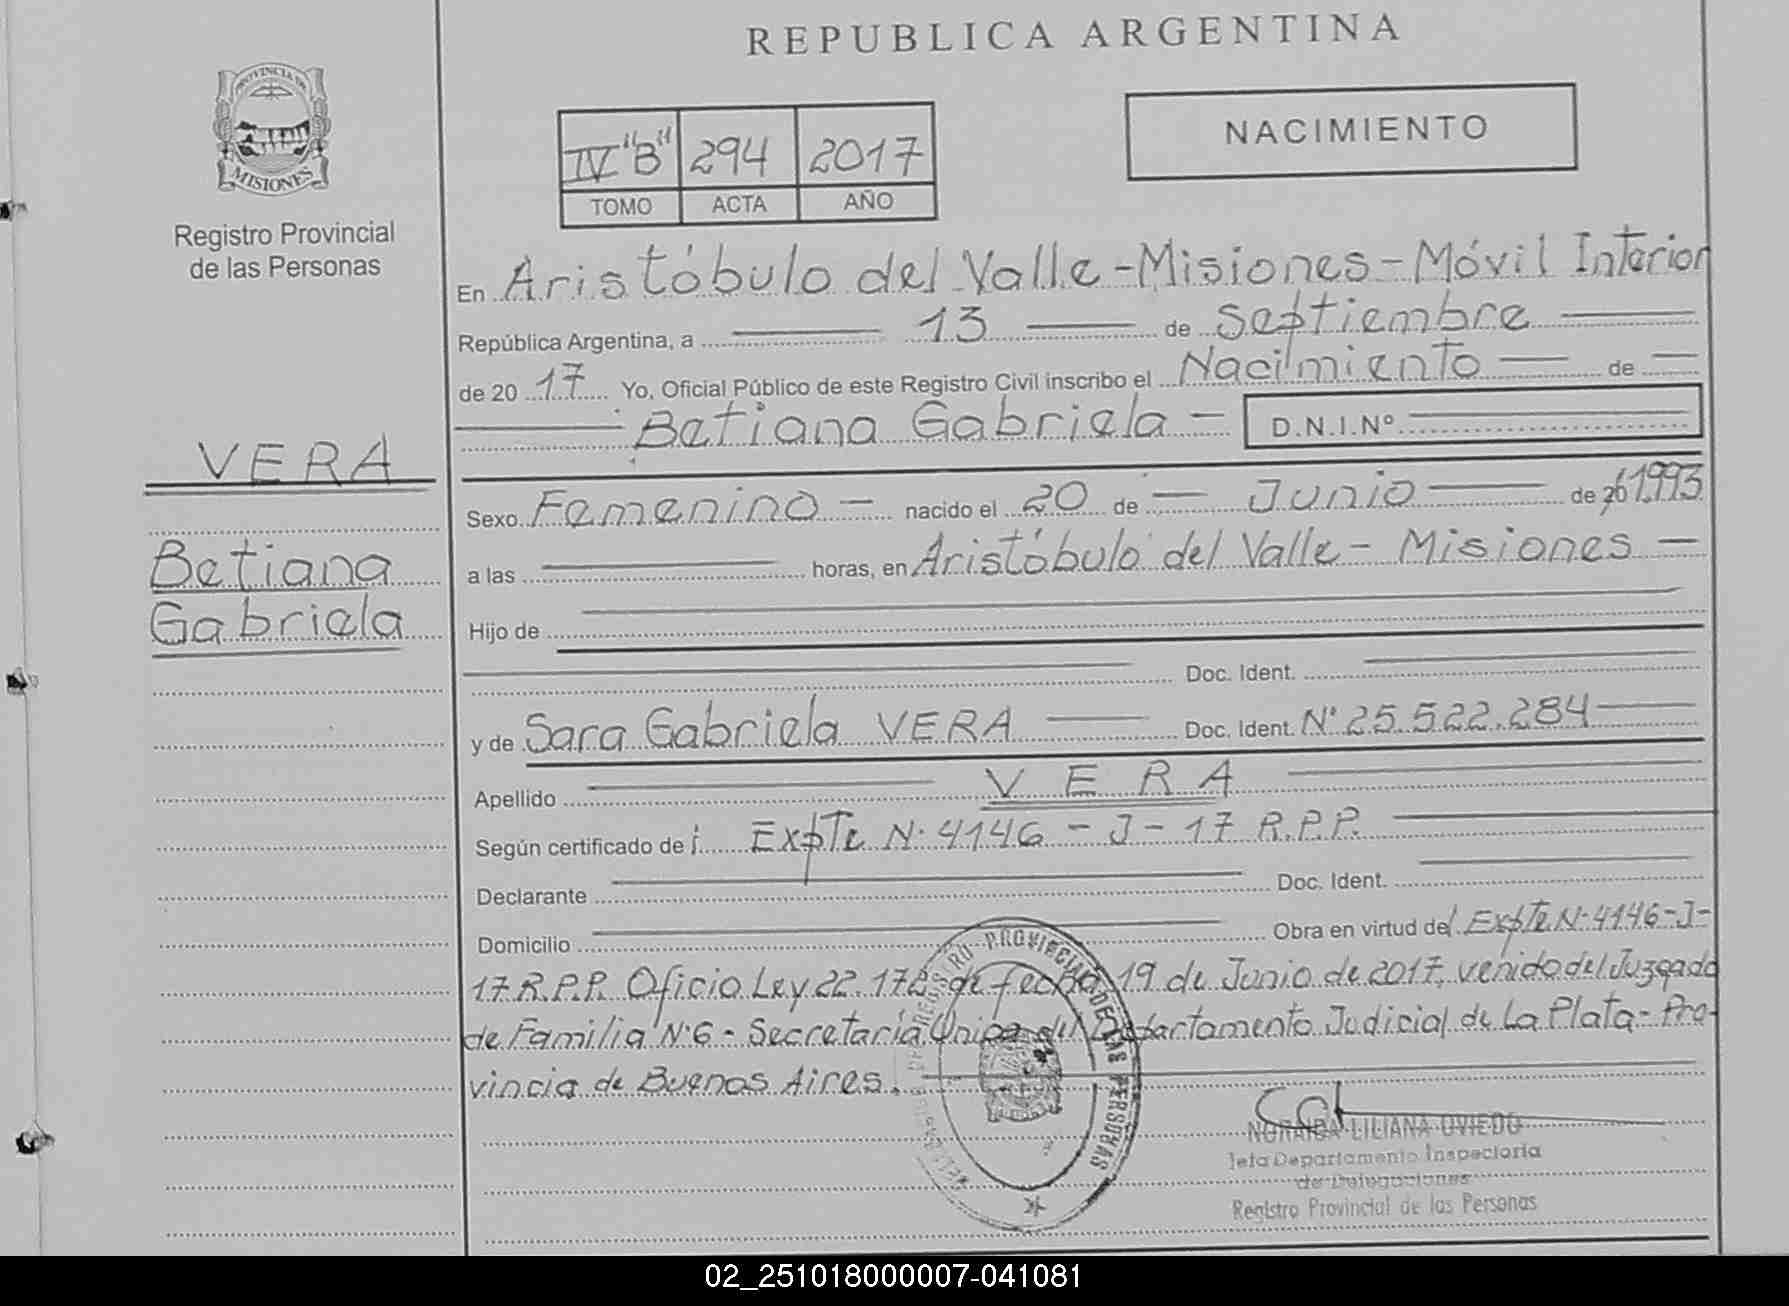 REPUBLICA ARGENTINA
PROVINCIA DE
MISIONES
Registro Provincial
de las Personas
IV "B" 294 2017
TOMO ACTA AÑO
NACIMIENTO
En Aristóbulo del Valle - Misiones - Móvil Interior
República Argentina, a 13 de Septiembre
de 20 17 Yo, Oficial Público de este Registro Civil inscribo el Nacimiento de
Betiana Gabriela - D.N.I.Nº
VERA
Betiana
Gabriela
Sexo Femenino - nacido el 20 de Junio de 20 1993
a las horas, en Aristóbulo del Valle - Misiones -
Hijo de
Doc. Ident.
y de Sara Gabriela VERA Doc. Ident. Nº 25.522.284
Apellido VERA
Según certificado de Expte Nº 4146 - J - 17 R.P.P.
Declarante Doc. Ident.
Domicilio Obra en virtud del Expte Nº 4146-J-
17 R.P.P. Oficio Ley 22.172 de fecha 19 de Junio de 2017, venido del Juzgado
de Familia Nº 6 - Secretaría Única del Departamento Judicial de La Plata - Pro-
vincia de Buenos Aires.
REGISTRO PROVINCIAL DE LAS PERSONAS
NORAIDA LILIANA OVIEDO
Jefa Departamento Inspectoria
de Delegaciones
Registro Provincial de las Personas
02_251018000007-041081